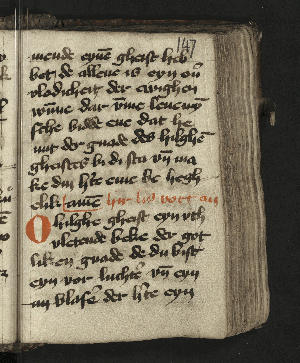 147
mende eyne gheist heb
bet de allene is eyn ou
vlodicheit der ewghen
wne dar vme leuen
sche bidde ene dat he
mit der gnade des hilghe
gheistes bi di sta vn ma
ke din hte eme ke hegh
elik amen hir lis vort an
O hilghe gheist eyn vth
vletende beke der got
liken gnade de du bist
eyn vor luchte vn eyn
an blase der hte eyn